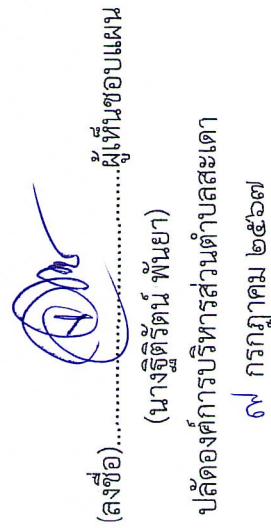 (ลงชื่อ)........................ผู้เห็นชอบแผน
(นางฐิติรัตน์ พันยา)
ปลัดองค์การบริหารส่วนตำบลสะเดา
๗ กรกฎาคม ๒๕๖๗